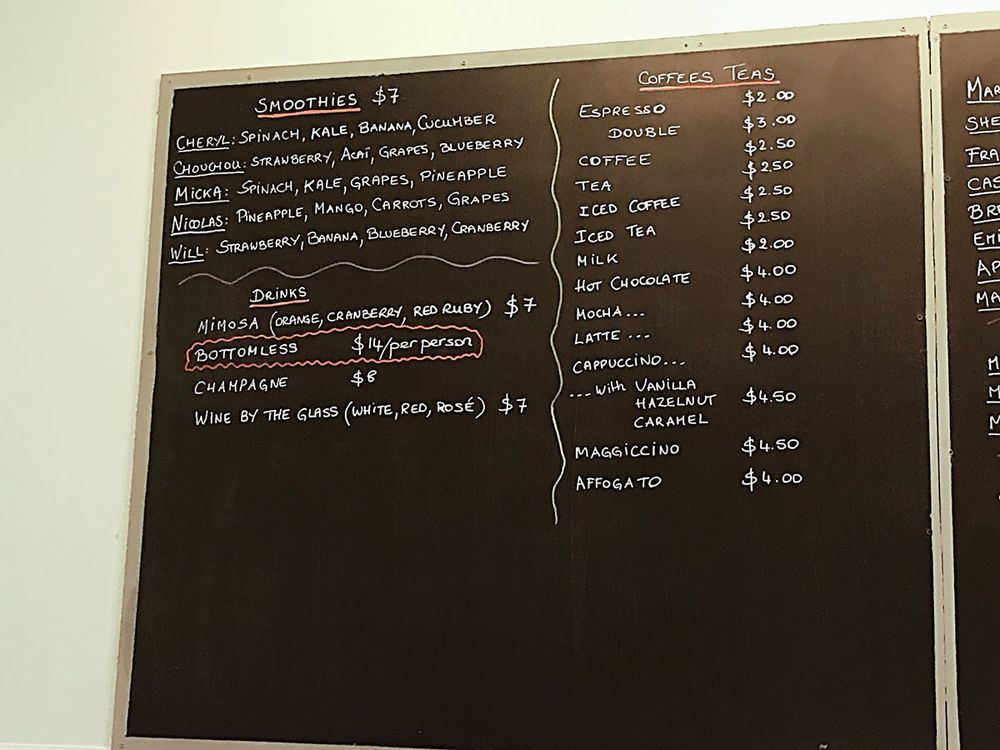 SMOOTHIES $7
CHERYL: SPINACH, KALE, BANANA, CUCUMBER
CHOUCHOU: STRAWBERRY, AÇAÏ, GRAPES, BLUEBERRY
MICKA: SPINACH, KALE, GRAPES, PINEAPPLE
NICOLAS: PINEAPPLE, MANGO, CARROTS, GRAPES
WILL: STRAWBERRY, BANANA, BLUEBERRY, CRANBERRY
DRINKS
MIMOSA (ORANGE, CRANBERRY, RED RUBY) $7
BOTTOMLESS $14/per person
CHAMPAGNE $8
WINE BY THE GLASS (WHITE, RED, ROSÉ) $7
COFFEES TEAS
ESPRESSO $2.00
DOUBLE $3.00
COFFEE $2.50
TEA $2.50
ICED COFFEE $2.50
ICED TEA $2.50
MILK $2.00
HOT CHOCOLATE $4.00
MOCHA... $4.00
LATTE ... $4.00
CAPPUCCINO... $4.00
...with VANILLA
HAZELNUT $4.50
CARAMEL
MAGGICCINO $4.50
AFFOGATO $4.00
MAR
SHE
FRA
CAS
BRE
EMI
AP
MA
M
M
M